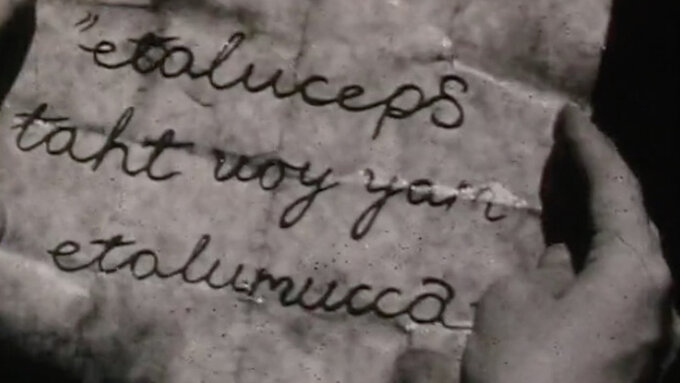 "etaluceps
taht uoy yam
etalumucca